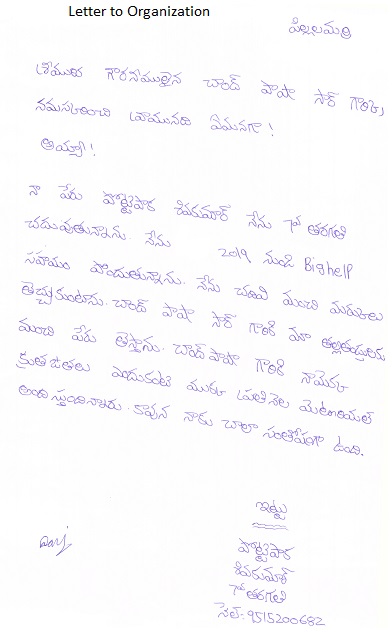 Letter to Organization
పిల్లలమర్రి
శ్రీయుత గౌరవనీయులైన చాంద్ పాషా సార్ గారికి,
నమస్కరించి వ్రాయునది ఏమనగా!
అయ్యా!
నా పేరు పొట్టెపాక శివకుమార్ నేను 7వ తరగతి
చదువుతున్నాను. నేను 2019 నుండి Bighelp
సహాయం పొందుతున్నాను. నేను చదివి మంచి మార్కులు
తెచ్చుకుంటాను. చాంద్ పాషా సార్ గారికి మా తల్లిదండ్రులకు
మంచి పేరు తెస్తాను. చాంద్ పాషా గారికి నాయొక్క
కృతజ్ఞతలు ఎందుకంటే మాకు ప్రతినెల మెటీరియల్
అందిస్తుందున్నారు. కావున నాకు చాలా సంతోషంగా ఉంది.
ఇట్లు
పొట్టెపాక
శివకుమార్
7వ తరగతి
సెల్:- 9515200682